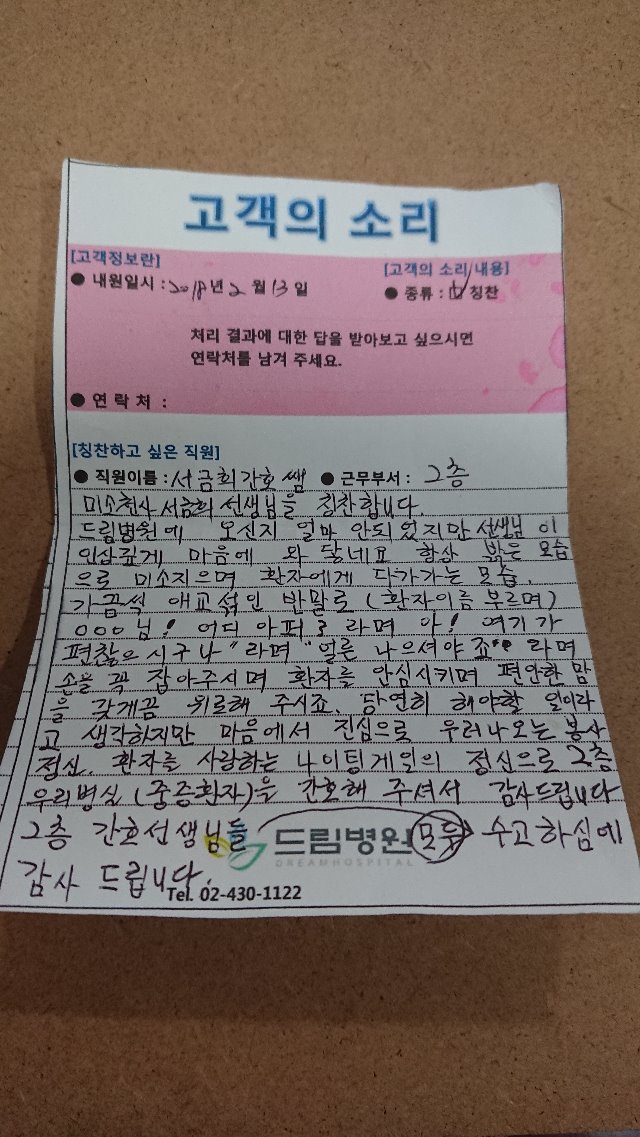 고객의 소리
[고객정보란]
● 내원일시 : 2018년 2월 13일
[고객의 소리/내용]
● 종류 : ☑ 칭찬
처리 결과에 대한 답을 받아보고 싶으시면
연락처를 남겨 주세요.
● 연 락 처 :
[칭찬하고 싶은 직원]
● 직원이름 : 서금희간호쌤 ● 근무부서 : 2층
미소천사 서금희 선생님을 칭찬합니다.
드림병원에 오신지 얼마 안되었지만 선생님 이
인상깊게 마음에 와 닿네요 항상 밝은 모습
으로 미소지으며 환자에게 다가가는 모습.
가끔씩 애교섞인 반말로 (환자이름 부르며)
ooo님! 어디 아퍼? 라며 아! 여기가
편찮으시구나" 라며 "얼른 나으셔야 죠" 라며
손을 꼭 잡아주시며 환자를 안심시키며 편안한 맘
을 갖게끔 위로해 주시죠. 당연히 해야할 일이라
고 생각하지만 마음에서 진심으로 우러나오는 봉사
정신. 환자를 사랑하는 나이팅게일의 정신으로 2층
우리병실 (중증환자)을 간호해 주셔서 감사드립니다
2층 간호선생님들 모두 수고하심에
드림병원
DREAMHOSPITAL
감사 드립니다.
Tel. 02-430-1122